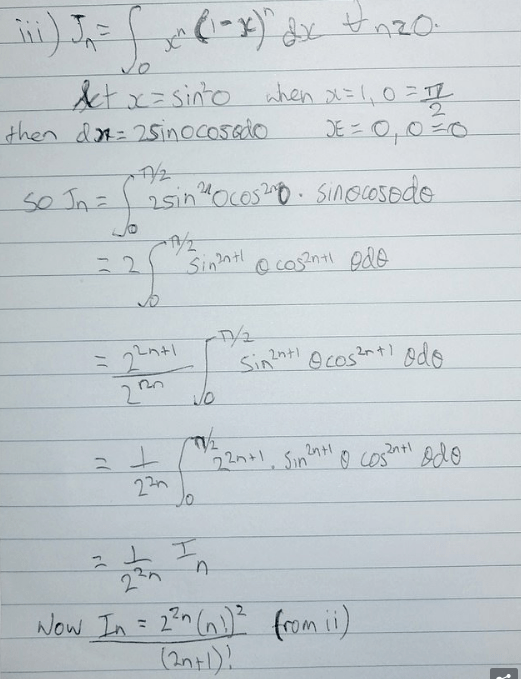 iii) Jₙ = ∫₀ xⁿ (1-x)ⁿ dx ∀ n≥0.
Let x = sin²θ when x=1, θ = π/2
then dx = 2sinθcosθdθ x = 0, θ = 0
so Jₙ = ∫₀^(π/2) 2sin²ⁿθcos²ⁿθ · sinθcosθdθ
= 2 ∫₀^(π/2) sin²ⁿ⁺¹ θ cos²ⁿ⁺¹ θdθ
= 2²ⁿ⁺¹/2²ⁿ ∫₀^(π/2) sin²ⁿ⁺¹ θcos²ⁿ⁺¹ θdθ
= 1/2²ⁿ ∫₀^(π/2) 2²ⁿ⁺¹ . sin²ⁿ⁺¹ θ cos²ⁿ⁺¹ θdθ
= 1/2²ⁿ Iₙ
Now Iₙ = 2²ⁿ(n!)²/(2n+1)! from ii)